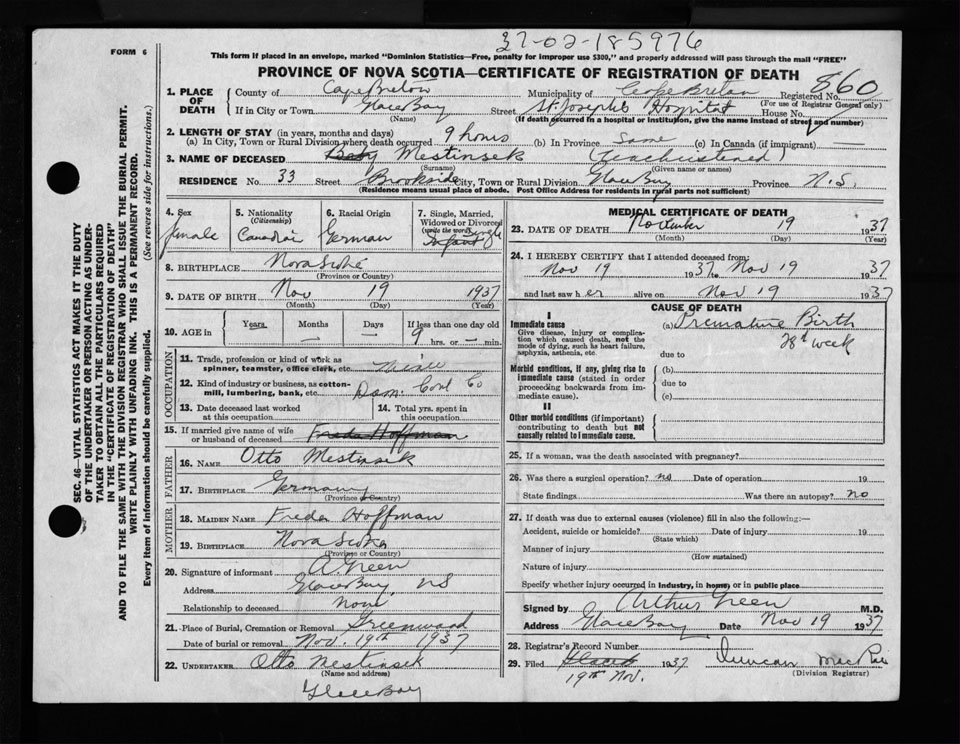 37-02-185976
FORM 6
This form if placed in an envelope, marked "Dominion Statistics—Free, penalty for improper use $300," and properly addressed will pass through the mail "FREE"
PROVINCE OF NOVA SCOTIA—CERTIFICATE OF REGISTRATION OF DEATH
860
1. PLACE OF DEATH County of Cape Breton Municipality of Cape Breton Registered No.
(For use of Registrar General only)
If in City or Town Glace Bay Street St. Joseph's Hospital House No.
(Name) (If death occurred in a hospital or institution, give the name instead of street and number)
2. LENGTH OF STAY (in years, months and days)
(a) In City, Town or Rural Division where death occurred 9 hours (b) In Province Same (c) In Canada (if immigrant) —
3. NAME OF DECEASED Baby Mestinsek
(Surname) (Given name or names)
RESIDENCE No. 33 Street Brookside City, Town or Rural Division Glace Bay Province N.S.
(Residence means usual place of abode. Post Office Address for residents in rural parts not sufficient)
4. Sex female
5. Nationality (Citizenship) Canadian
6. Racial Origin German
7. Single, Married, Widowed or Divorced (write the word) Single Infant
8. BIRTHPLACE Nova Scotia
(Province or Country)
9. DATE OF BIRTH Nov 19 1937
(Month) (Day) (Year)
10. AGE in Years — Months — Days — If less than one day old 9 hrs. or — min.
OCCUPATION
11. Trade, profession or kind of work as spinner, teamster, office clerk, etc.
12. Kind of industry or business, as cotton-mill, lumbering, bank, etc. Dom. Coal Co
13. Date deceased last worked at this occupation
14. Total yrs. spent in this occupation
15. If married give name of wife or husband of deceased Freda Hoffman
FATHER
16. NAME Otto Mestinsek
17. BIRTHPLACE Germany
(Province or Country)
MOTHER
18. MAIDEN NAME Freda Hoffman
19. BIRTHPLACE Nova Scotia
(Province or Country)
20. Signature of informant A. Green
Address Glace Bay, NS
Relationship to deceased None
21. Place of Burial, Cremation or Removal Greenwood
Date of burial or removal Nov. 19th 1937
22. UNDERTAKER Otto Mestinsek
(Name and address)
Glace Bay
MEDICAL CERTIFICATE OF DEATH
23. DATE OF DEATH November 19 1937
(Month) (Day) (Year)
24. I HEREBY CERTIFY that I attended deceased from:
Nov 19 1937 to Nov 19 1937
and last saw her alive on Nov 19 1937
CAUSE OF DEATH
I
Immediate cause (a) Premature Birth
Give disease, injury or complication which caused death, not the mode of dying, such as heart failure, asphyxia, asthenia, etc.
28th week
due to
Morbid conditions, if any, giving rise to immediate cause (stated in order proceeding backwards from immediate cause).
(b)
due to
(c)
II
Other morbid conditions (if important) contributing to death but not causally related to immediate cause.
25. If a woman, was the death associated with pregnancy?
26. Was there a surgical operation? no Date of operation 19
State findings Was there an autopsy? no
27. If death was due to external causes (violence) fill in also the following:—
Accident, suicide or homicide? Date of injury 19
(State which)
Manner of injury
(How sustained)
Nature of injury
Specify whether injury occurred in industry, in home, or in public place
Signed by Arthur Green M.D.
Address Glace Bay Date Nov 19 1937
28. Registrar's Record Number
29. Filed 1937 Duncan MacRae
19th Nov. (Division Registrar)
SEC. 46—VITAL STATISTICS ACT MAKES IT THE DUTY
OF THE UNDERTAKER OR PERSON ACTING AS UNDER-
TAKER TO OBTAIN ALL THE PARTICULARS REQUIRED
IN THE "CERTIFICATE OF REGISTRATION OF DEATH"
AND TO FILE THE SAME WITH THE DIVISION REGISTRAR WHO SHALL ISSUE THE BURIAL PERMIT.
WRITE PLAINLY WITH UNFADING INK. THIS IS A PERMANENT RECORD.
Every item of information should be carefully supplied. (See reverse side for instructions.)